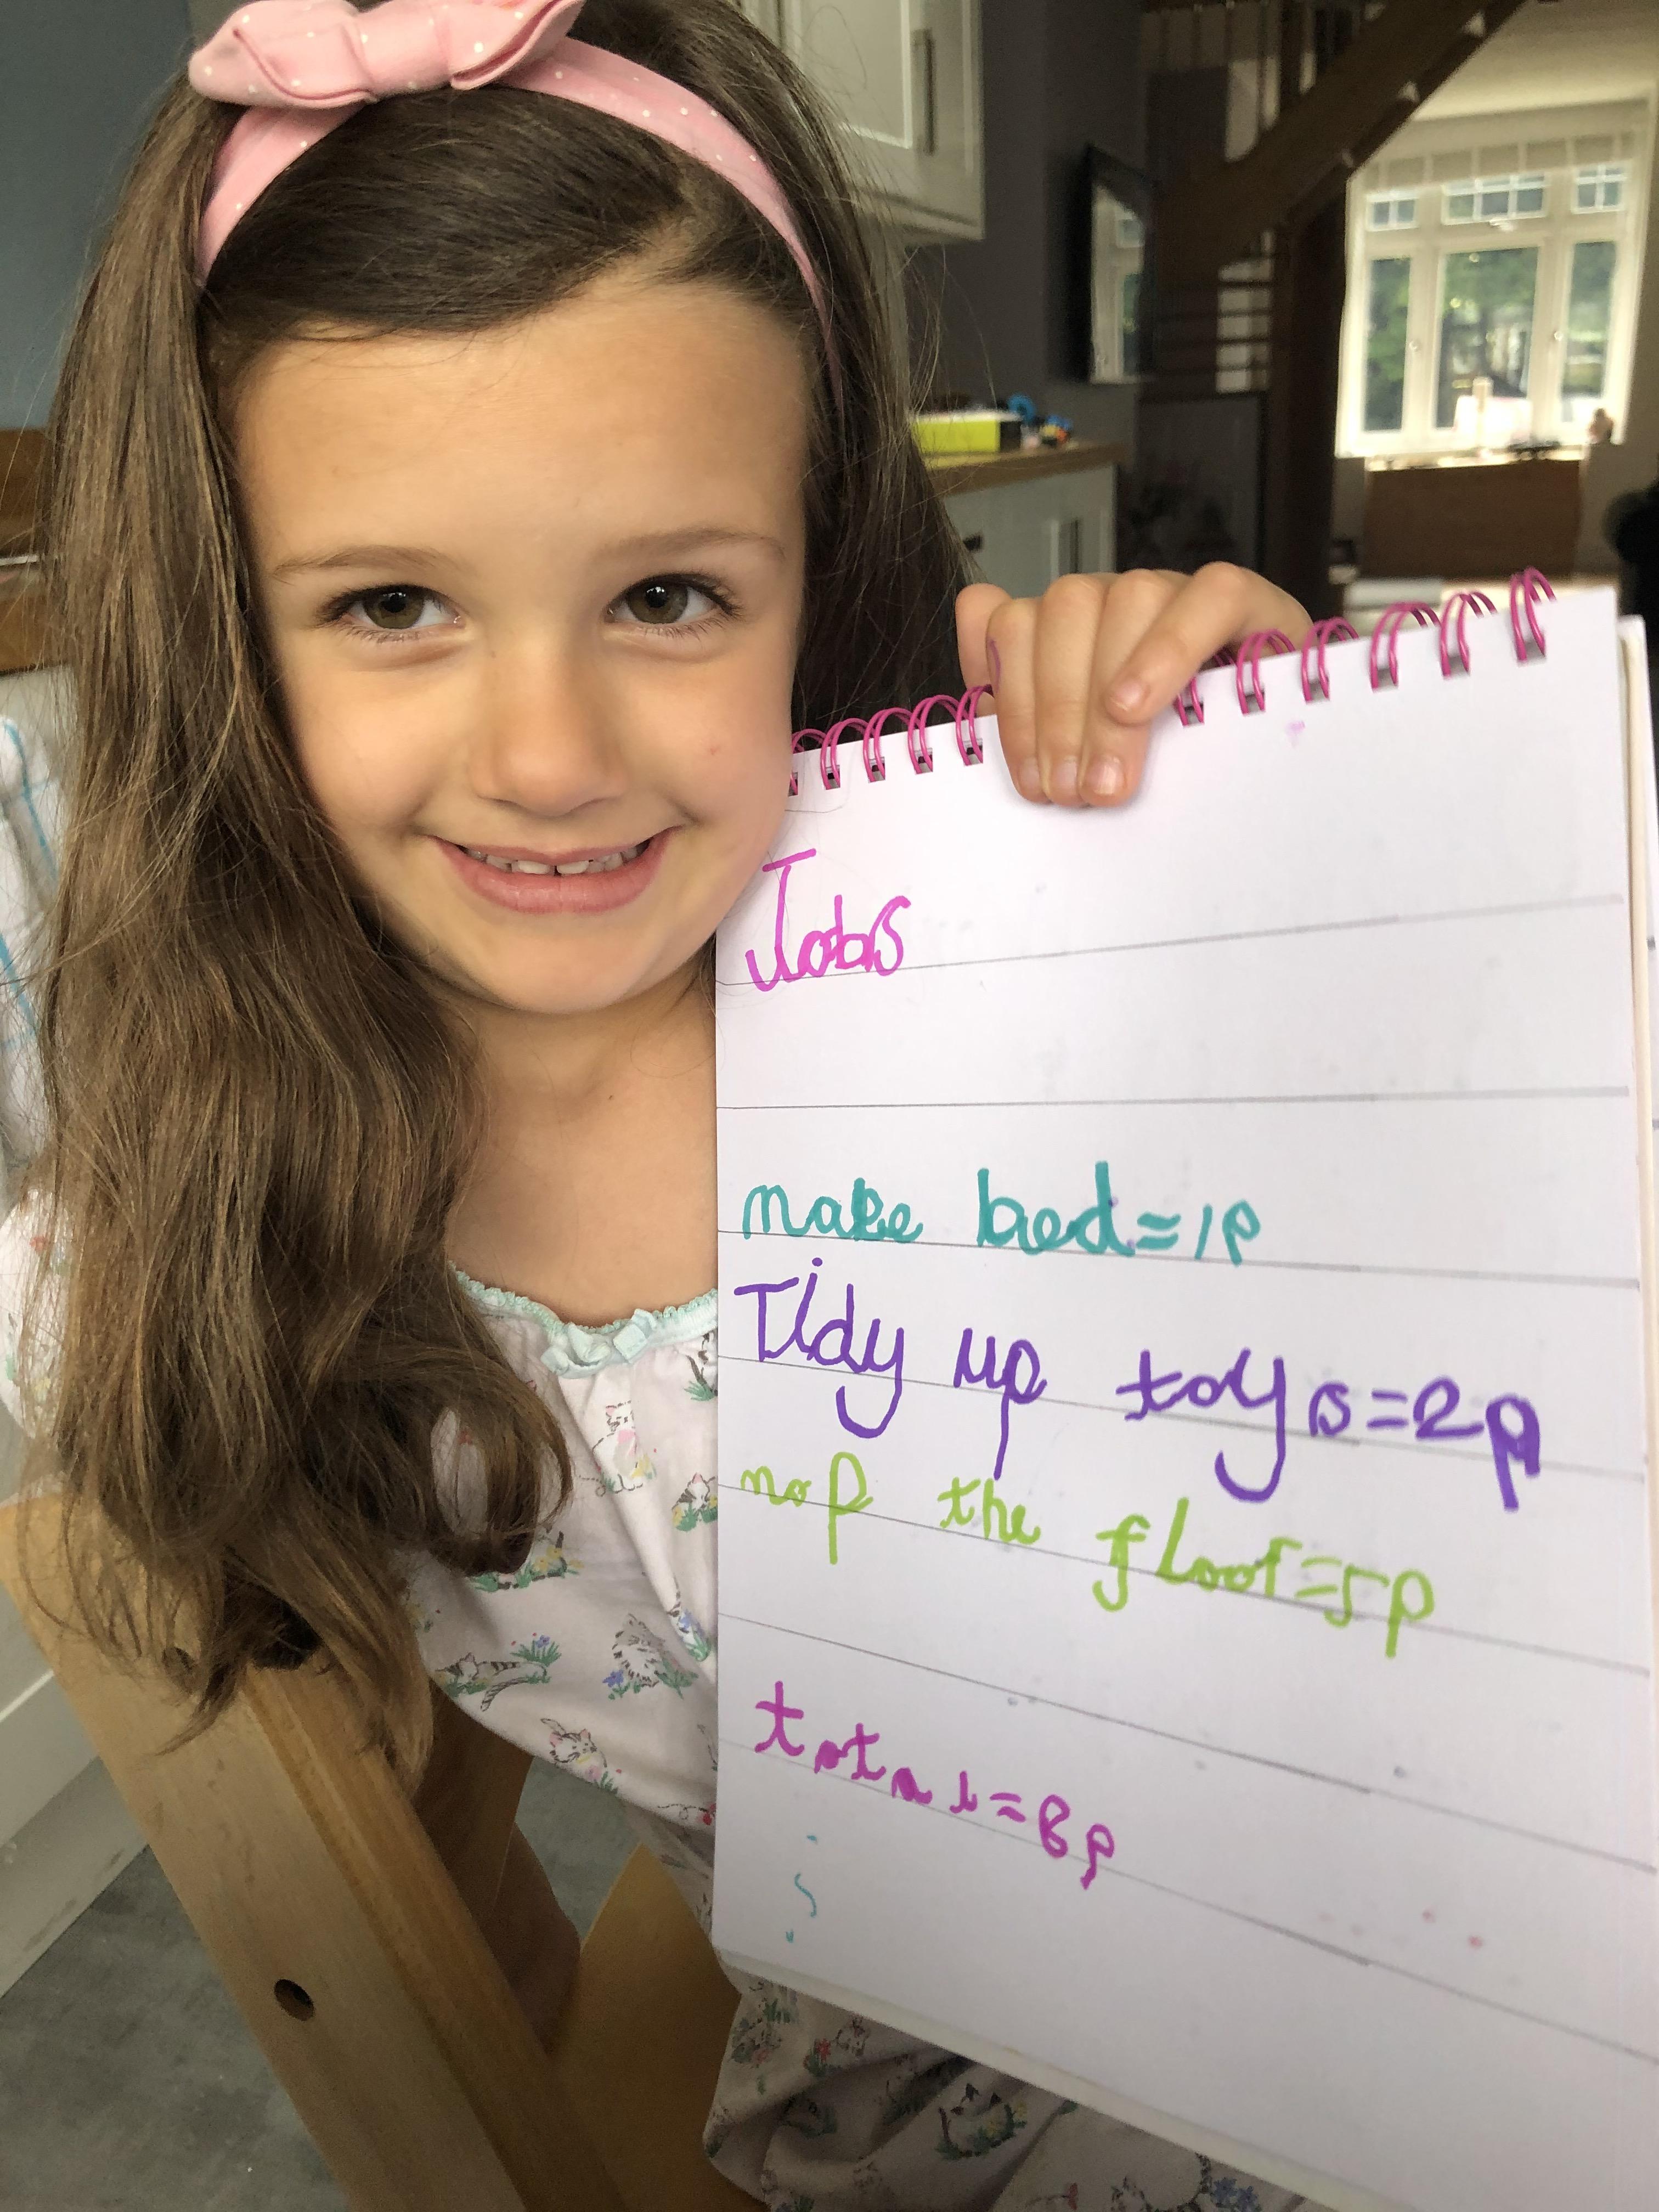 Jobs
make bed=1p
Tidy up toys=2p
mop the floor=5p
total=8p